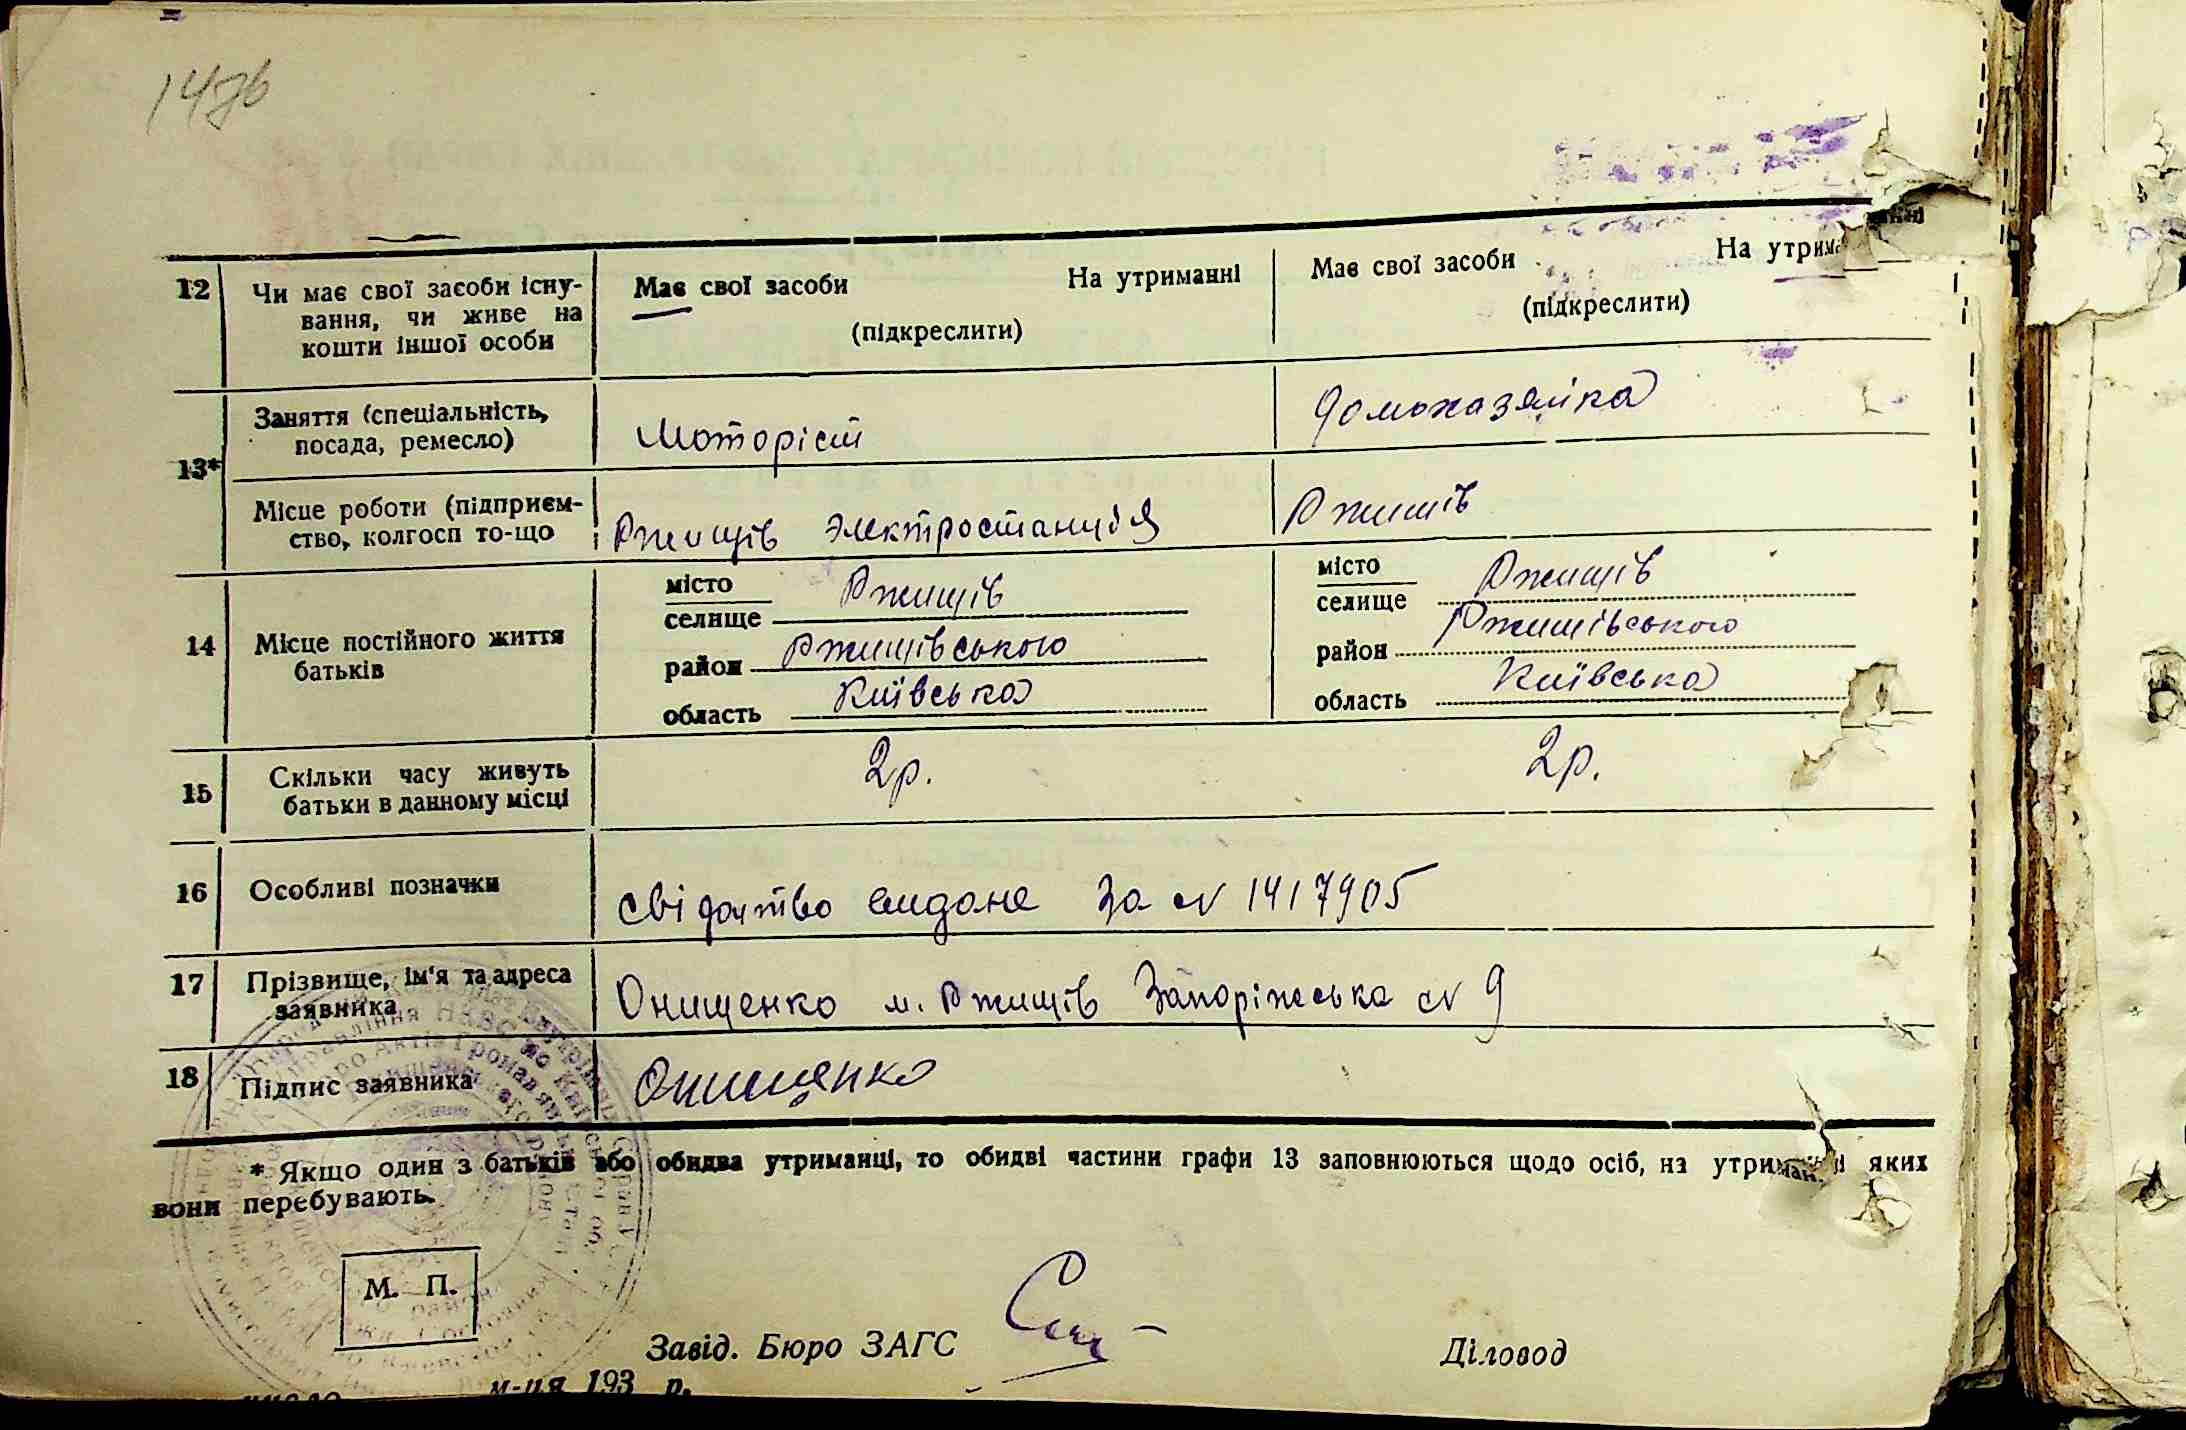 147б
12 Чи має свої засоби існу-
вання, чи живе на
кошти іншої особи
Має свої засоби На утриманні
(підкреслити)
Має свої засоби На утрима
(підкреслити)
13*
Заняття (спеціальність,
посада, ремесло)
Моторіст
домохазяйка
Місце роботи (підприєм-
ство, колгосп то-що
Ржищів электростанція
Ржищів
14 Місце постійного життя
батьків
місто
селище Ржищів
район Ржищівського
область Київська
місто
селище Ржищів
район Ржищівського
область Київська
15 Скільки часу живуть
батьки в данному місці
2р.
2р.
16 Особливі позначки
свідоцтво видане за № 1417905
17 Прізвище, ім'я та адреса
заявника
Онищенко м. Ржищів Запоріжська № 9
18 Підпис заявника
Онищенко
* Якщо один з батьків або обидва утриманці, то обидві частини графи 13 заповнюються щодо осіб, на утриман і яких
вони перебувають.
М. П.
Завід. Бюро ЗАГС
Діловод
м-ця 193 р.